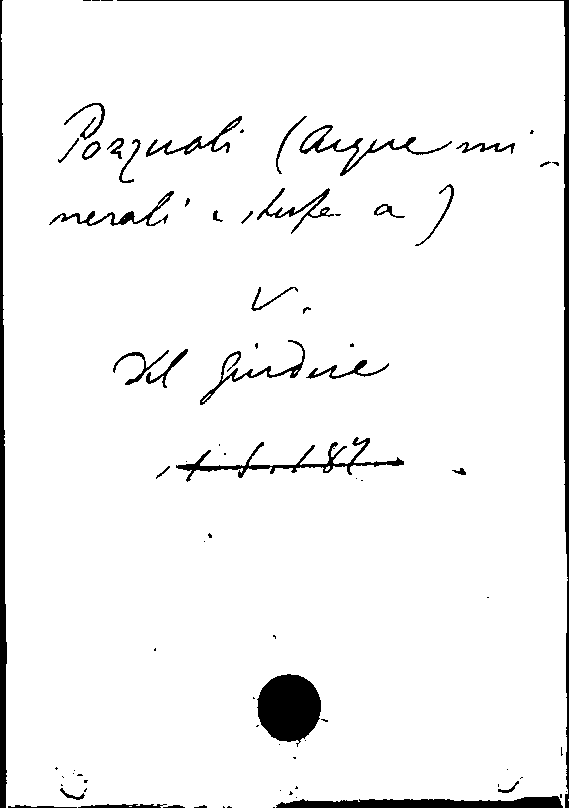 Pozzuoli (Acque mi-
nerali e stufe a)
V.
Del Giudice